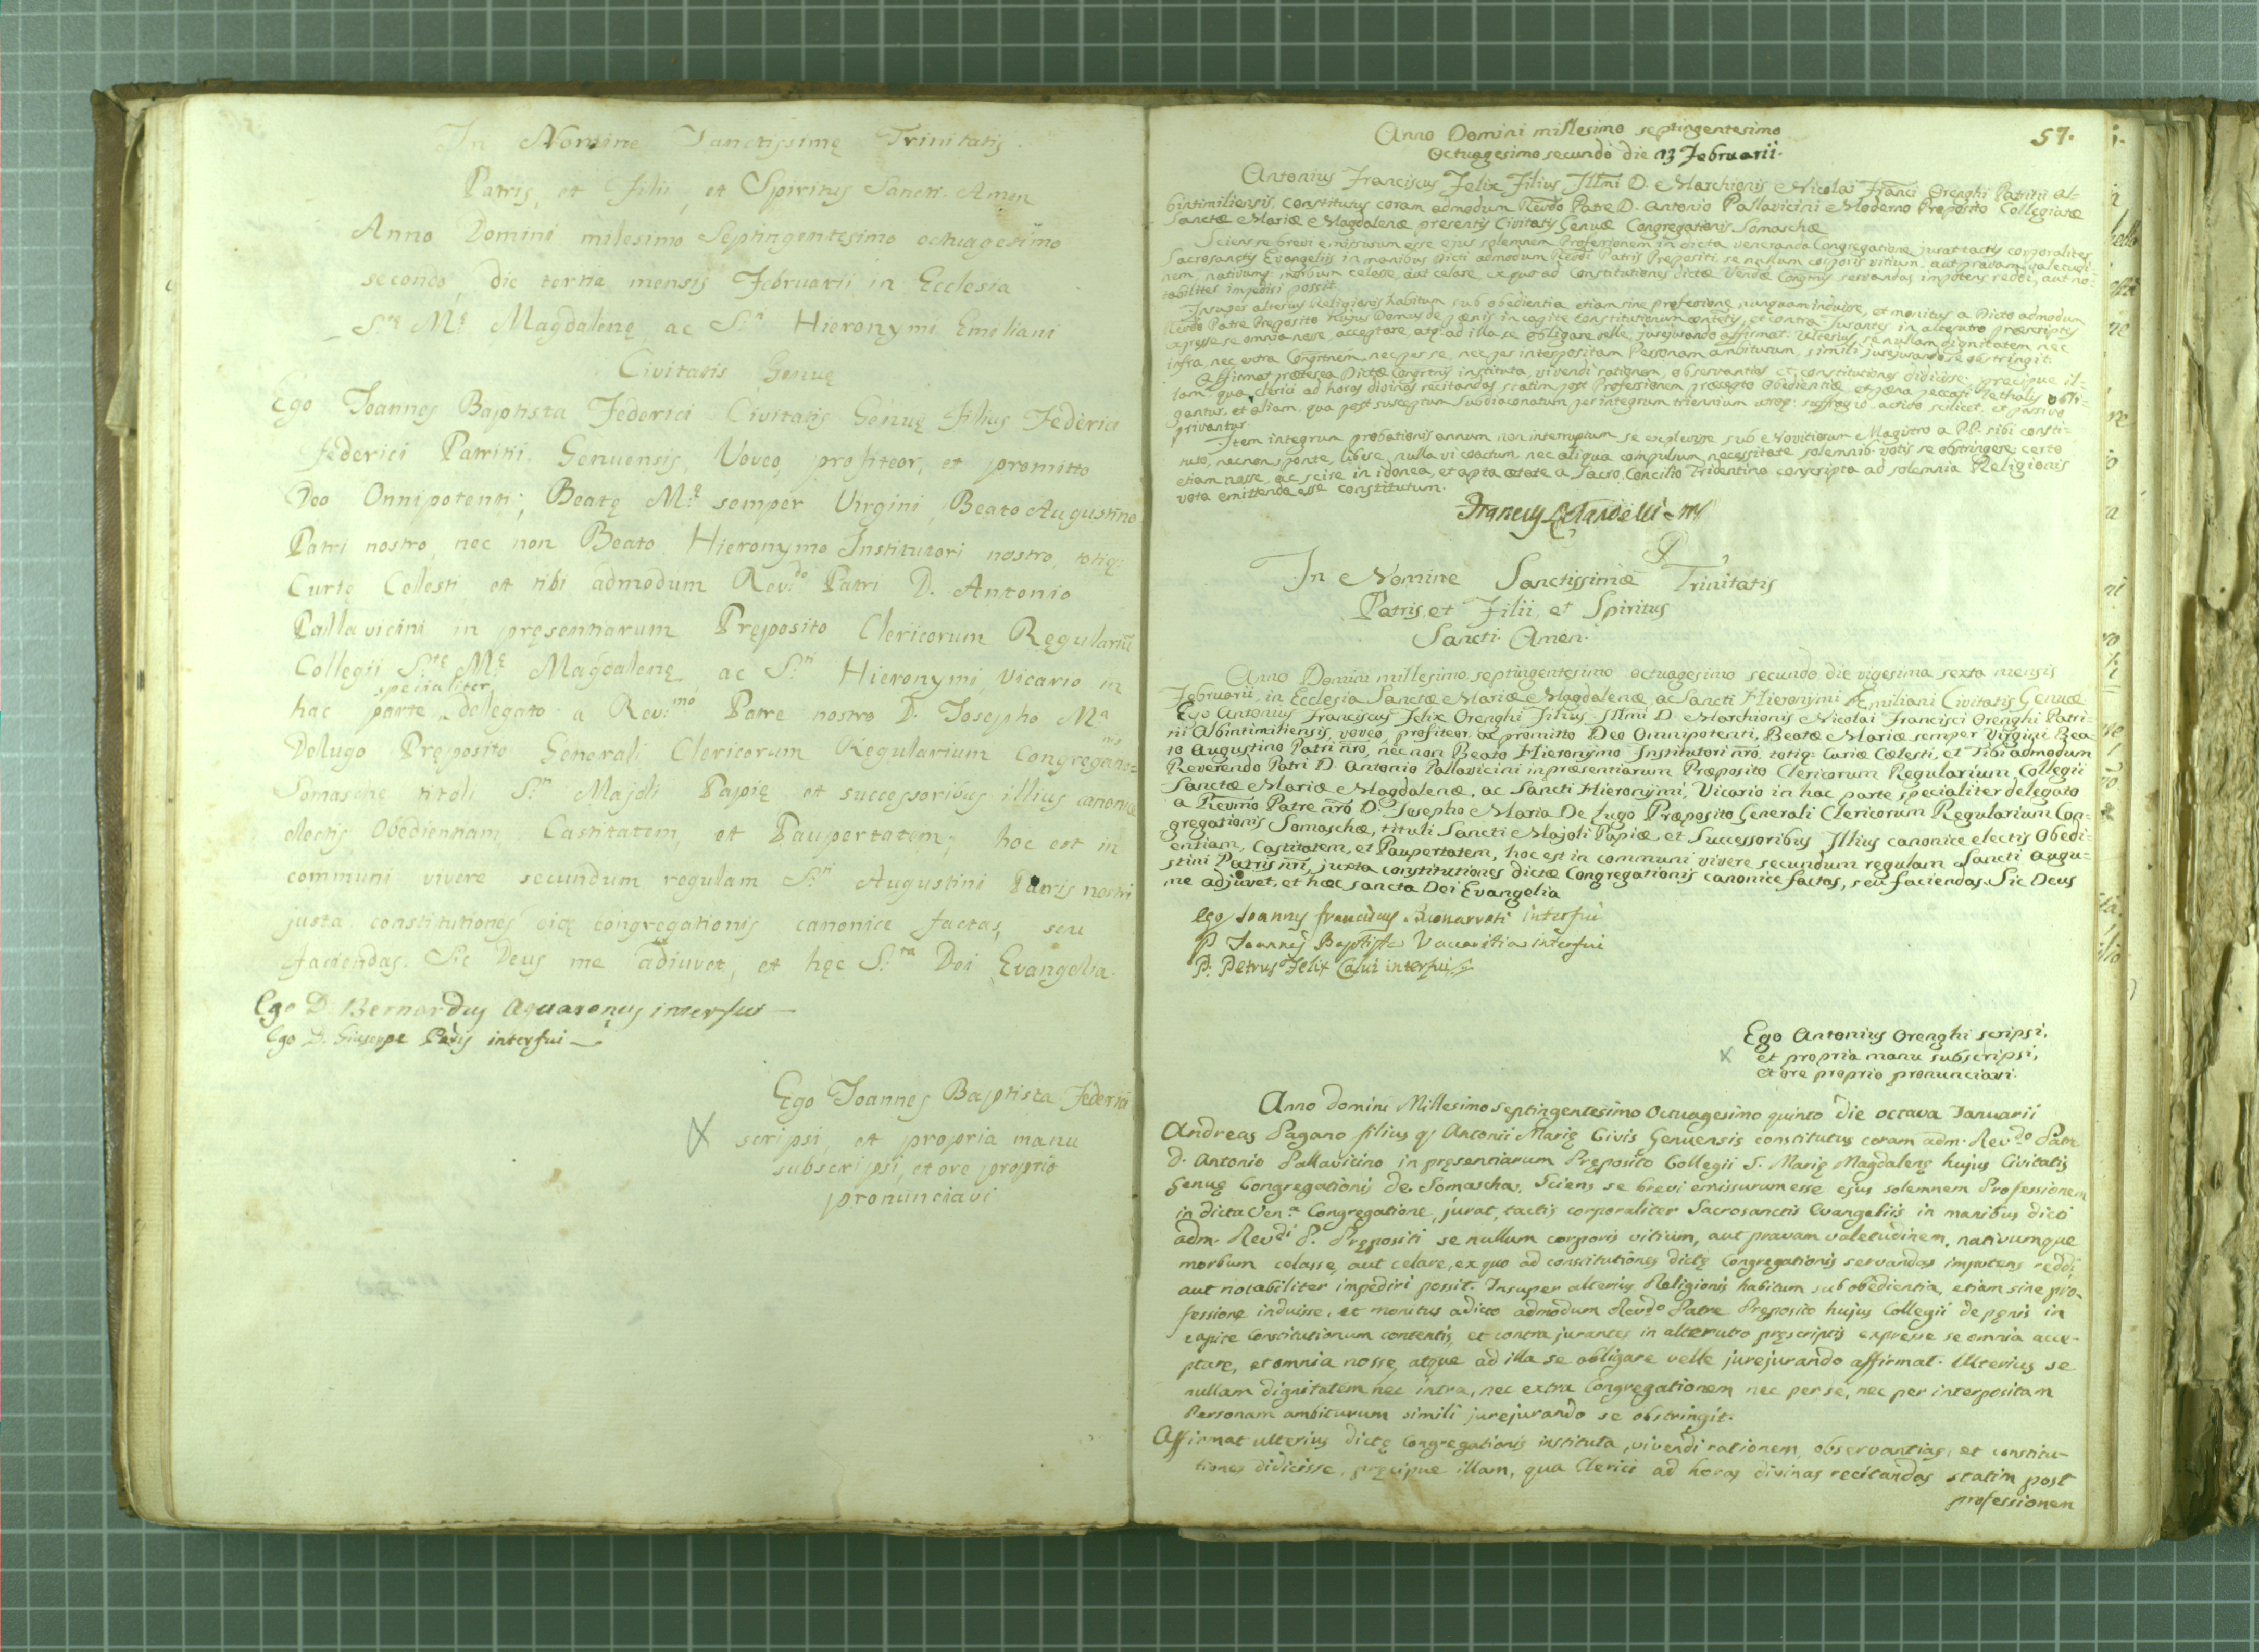 In Nomine Sanctissimę Trinitatis.
Patris, et Filii, et Spiritus Sancti. Amen
Anno Domini milesimo Septingentesimo octuagesimo
secondo, die tertia mensis Februarii in Ecclesia
S.tę M.ę Magdalenę, ac S.n Hieronymi Emeliani
Civitatis Genuę
Ego Joannes Baptista Federici Civitatis Genuę filius Federici
Federici Patritii Genuensis, Voveo, profiteor, et promitto
Deo Onnipotenti; Beatę M.ę semper Virgini, Beato Augustino
Patri nostro, nec non Beato Hieronymo Institutori nostro, totiq:
Curię Celesti, et tibi admodum Rev.do Patri D. Antonio
Pallavicini in pręsentiarum Pręposito Clericorum Regulariũ
Collegii S.tę M.ę Magdalenę ac S.ti Hieronymi, Vicario in
hac parte specialiter delegato a Rev.mo Patre nostro D. Josepho M.a
Delugo Pręposito Generali Clericorum Regularium Congregatio=
Somaschę titoli S.n Majoli Papię et successoribus illius canonice
electis Obedientiam, Castitatem, et Paupertatem; hoc est in
communi vivere secundum regulam S.n Augustini Patris nostri
justa constitutiones eię congregationis canonice factas, seu
faciendas. Sic Deus me adiuvet, et hęc S.ta Dei Evangelia.
Ego D. Bernardus Aquaronus interfui
Ego D. Giuseppe interfui
Ego Joannes Baptista Federici
scripsi, et propria manu
subscripsi, et ore proprio
pronunciavi
57.
Anno Domini millesimo septingentesimo
Octuagesimo secundo die 13 Februarii.
Antonius Franciscus Felix Filius Illmi D. Marchionis Nicolai Franci Orenghi Patritii Al-
bintimiliensis, constitutus coram admodum Rendo Patre D. Antonio Pallavicini Moderno Preposito Collegiatæ
Sanctæ Mariæ Magdalenæ presentis Civitatis Genuæ Congregationis Somaschæ
Sciens se brevi emissurum esse ejus solemnem Professionem in dicta veneranda Congregatione jurat tactis corporaliter
Sacrosanctis Evangeliis in manibus Dicti admodum Rendi Patris Prepositi se nullum corporis vitium, aut pravam valetudi-
nem, nativumq: morbum celasse, aut celare, ex quo ad Constitutiones dictæ Vendæ Congnis servandas impotens reddi, aut no-
tabiliter impediri possit.
Insuper alterius Religionis habitum sub obedientia etiam sine professione nunquam induisse, et monitus a Dicto admodum
Rendo Patre Preposito hujus Domus de pænis in capite Constitutionum contentis, et contra Jurantes in alterutro præscriptis
expresse se omnia nosse, acceptare, atq: ad illa se obligare velle jurejurando affirmat. Ulterius se nullam dignitatem nec
infra, nec extra Congrtnem, nec per se, nec per interpositam Personam ambiturum, simili jurejurando se obstringit.
Affirmat præterea Dictæ Congrtnis instituta, vivendi rationem, observantias et constitutiones didicisse, precipue il-
lam, qua clerici ad horas divinas recitandas statim post Professionem præcepto Obedientiæ, et pæna peccati lethalis obli-
gantur, et etiam, qua post susceptum Subdiaconatum per integrum triennium utroq: suffragio, activo scilicet, et passivo
privantur.
Item integrum probationis annum non interruptum se explevisse sub Novitiorum Magistro a P.P. sibi consti-
tuto, nec non sponte, libere, nulla vi coactum, nec aliqua compulsum necessitate solemnib: votis se obstringere; certo
etiam nosse, ac scire in idonea, et apta ætate a Sacro Concilio Tridentino conscripta ad solemnia Religionis
vota emittenda esse constitutum.
In Nomine Sanctissimæ Trinitatis
Patris, et Filii, et Spiritus
Sancti. Amen.
Anno Domini millesimo septingentesimo octuagesimo secundo die vigesima sexta mensis
Februarii in Ecclesia Sanctæ Mariæ Magdalenæ, ac Sancti Hieronymi Æmiliani Civitatis Genuæ
Ego Antonius Franciscus Felix Orenghi Filius Illmi D. Marchionis Nicolai Francisci Orenghi Patri=
tii Albintimiliensis, voveo, profiteor, ac promitto Deo Omnipotenti, Beatæ Mariæ semper Virgini, Bea=
to Augustino Patri nro, nec non Beato Hieronymo Institutori nro, totiq: Curiæ Cœlesti, et Tibi admodum
Reverendo Patri D. Antonio Pallavicini in præsentiarum Præposito Clericorum Regularium Collegii
Sanctæ Mariæ Magdalenæ, ac Sancti Hieronymi, Vicario in hac parte specialiter delegato
a Revmo Patre nro D. Josepho Maria De Lugo Præposito Generali Clericorum Regularium Con-
gregationis Somaschæ, tituli Sancti Majoli Papiæ, et Successoribus Illius canonice electis Obedi=
entiam, Castitatem, et Paupertatem, hoc est in communi vivere secundum regulam Sancti Augu=
stini Patris nri, juxta constitutiones dictæ Congregationis canonice factas, seu faciendas. Sic Deus
me adjuvet, et hæc sancta Dei Evangelia
Ego Joannes franciscus Buonarroti interfui
P. Joannes Baptista interfui
P. Petrus Felix Calvi interfui
Ego Antonius Orenghi scripsi,
et propria manu subscripsi,
et ore proprio pronunciavi.
Anno domini Millesimo Septingentesimo Octuagesimo quinto die octava Januarii
Andreas Pagano filius q: Antonii Marię Civis Genuensis constitutus coram adm. Rev.do Patre
D. Antonio Pallavicino in pręsentiarum Pręposito Collegii S. Marię Magdalenę hujus Civitatis
Genuę Congregationis de Somascha, Sciens se brevi emissurum esse ejus solemnem Professionem
in dicta Ven.a Congregatione, jurat, tactis corporaliter Sacrosanctis Evangeliis in manibus dicti
adm. Rev.di P. Prępositi se nullum corporis vitium, aut pravam valetudinem, nativumque
morbum celasse, aut celare, ex quo ad constitutiones dictę Congregationis servandas impotens reddi,
aut notabiliter impediri possit. Insuper alterius Religionis habitum sub obedientia, etiam sine pro-
fessione induisse, et monitus a dicto admodum Revdo Patre Pręposito hujus Collegii de pęnis in
capite Constitutionum contentis, et contra jurantes in alterutro pręscriptis expresse se omnia acce-
ptare, et omnia nosse, atque ad illa se obligare velle jurejurando affirmat. Ulterius se
nullam dignitatem nec intra, nec extra Congregationem nec per se, nec per interpositam
Personam ambiturum simili jurejurando se obstringit.
Affirmat ulterius dictę Congregationis instituta, vivendi rationem, observantias, et constitu-
tiones didicisse, pręcipue illam, qua Clerici ad horas divinas recitandas statim post
professionem